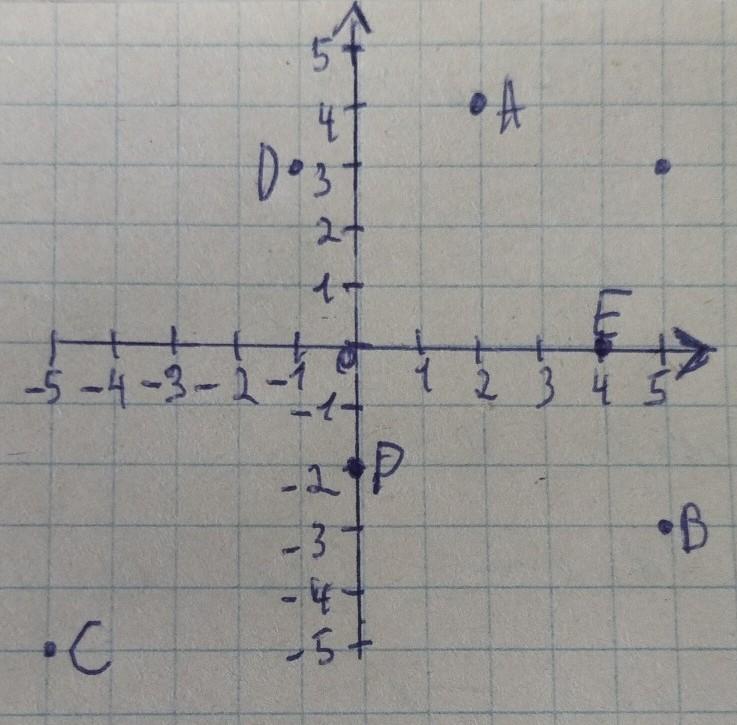 5
4 A
D 3
2
1
E
0
-5 -4 -3 -2 -1 1 2 3 4 5
-1
-2 P
-3 B
-4
-5
C